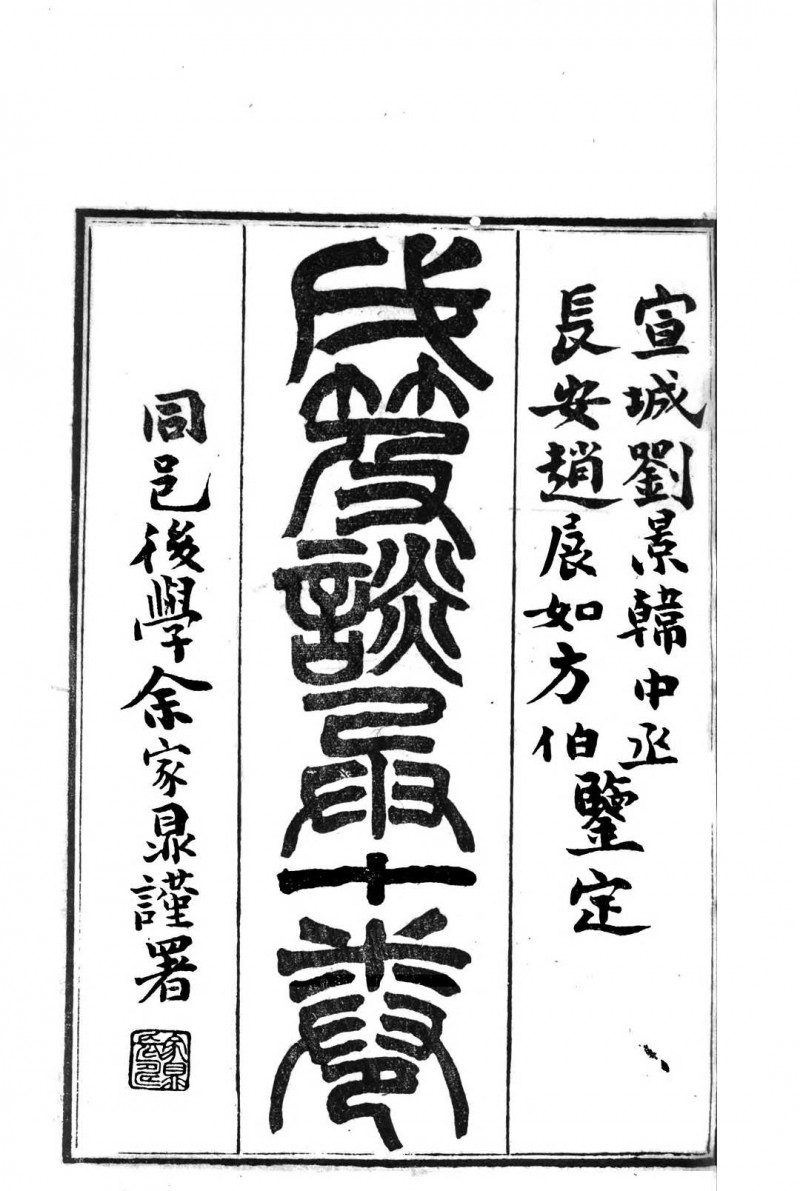 宣城劉景韓中丞
長安趙展如方伯鑒定
戊笈談兵十卷
同邑後學余家鼎謹署